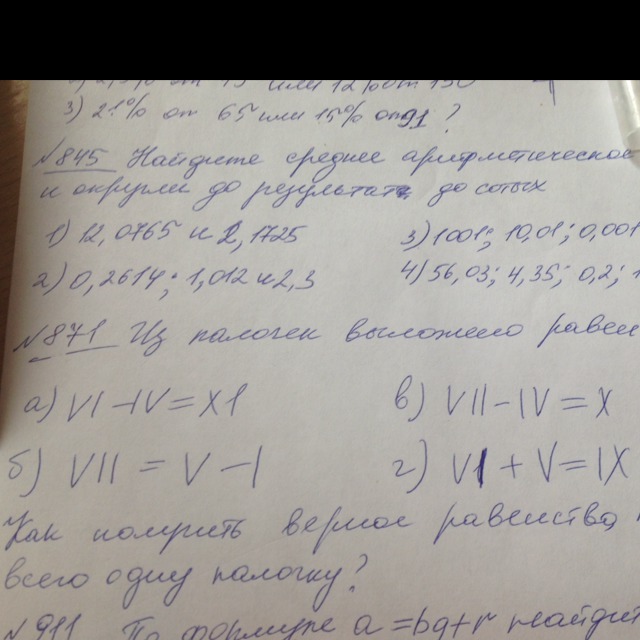 2,5% от 15 или 12% от 150
3) 21% от 65 или 15% от 91 ?
№845 Найдите среднее арифметическое
и округли до результат до сотых
1) 12,0765 и 2,1725
3) 1001; 10,01; 0,001
2) 0,2614; 1,012 и 2,3
4) 56,03; 4,35; 0,2; 1
№871 Из палочек выложено равен
а) VI - IV = XI
в) VII - IV = X
б) VII = V - I
г) VI + V = IX
Как получить верное равенство,
всего одну палочку?
№911 По формуле a = bq + r найдит